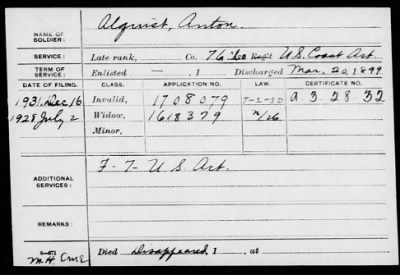 NAME OF SOLDIER: Alquist, Anton
SERVICE: Late rank, Co. 76 Co Reg't U.S. Coast Art.
TERM OF SERVICE: Enlisted — , 1 Discharged Mar. 20, 1899
DATE OF FILING. CLASS. APPLICATION NO. LAW. CERTIFICATE NO.
1931 Dec 16 Invalid, 1708079 A 3-28-32
1928 July 2 Widow, 1618379
Minor,
ADDITIONAL SERVICES: F-7-U S Art.
Died Disappeared, 1 , at